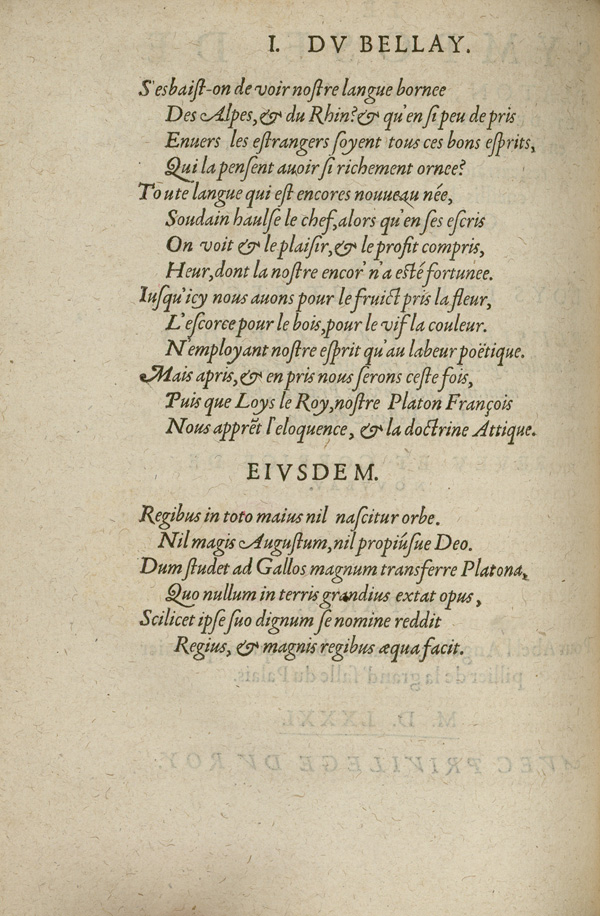 I. DV BELLAY.
S'esbaiſt-on de voir noſtre langue bornee
Des Alpes, & du Rhin? & qu'en ſi peu de pris
Enuers les eſtrangers ſoyent tous ces bons eſprits,
Qui la penſent auoir ſi richement ornee?
Toute langue qui eſt encores nouueau née,
Soudain haulſe le chef, alors qu'en ſes eſcris
On voit & le plaiſir, & le profit compris,
Heur, dont la noſtre encor' n'a eſté fortunee.
Iuſqu'icy nous auons pour le fruict pris la fleur,
L'eſcorce pour le bois, pour le vif la couleur.
N'employant noſtre eſprit qu'au labeur poëtique.
Mais apris, & en pris nous ſerons ceſte fois,
Puis que Loys le Roy, noſtre Platon François
Nous apprẽt l'eloquence, & la doctrine Attique.
EIVSDEM.
Regibus in toto maius nil naſcitur orbe.
Nil magis Auguſtum, nil propiúſue Deo.
Dum ſtudet ad Gallos magnum transferre Platona,
Quo nullum in terris grandius extat opus,
Scilicet ipſe ſuo dignum ſe nomine reddit
Regius, & magnis regibus æqua facit.
pillier de la grand' ſalle du Palais.
M. D. LXXXI.
AVEC PRIVILEGE DV ROY.